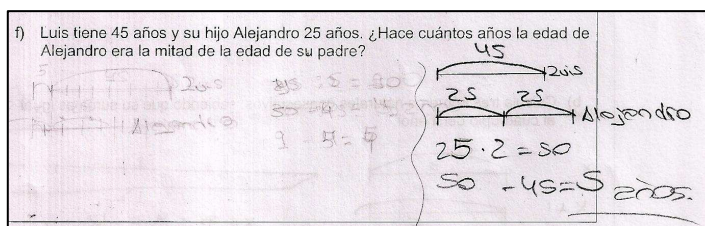 f) Luis tiene 45 años y su hijo Alejandro 25 años. ¿Hace cuántos años la edad de
Alejandro era la mitad de la edad de su padre?
45
Luis
25 25
Alejandro
25·2=50
50 -45=5 años.
5
Luis
Alejandro